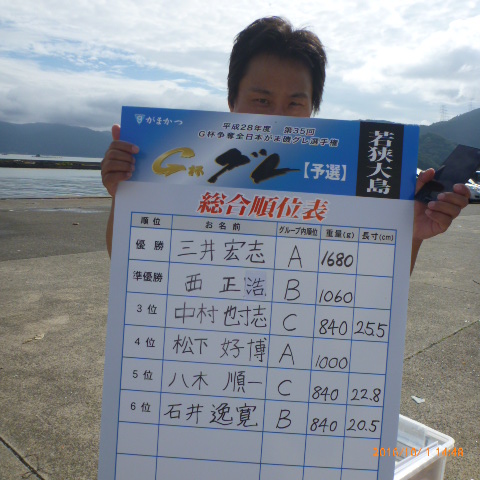 がまかつ
平成28年度 第35回
G杯争奪全日本がま磯グレ選手権
G杯 グレ 【予選】
若狭大島
総合順位表
順位 お名前 グループ内順位 重量(g) 長寸(cm)
優勝 三井宏志 A 1680
準優勝 西正浩 B 1060
3位 中村也寸志 C 840 25.5
4位 松下好博 A 1000
5位 八木順一 C 840 22.8
6位 石井逸寛 B 840 20.5